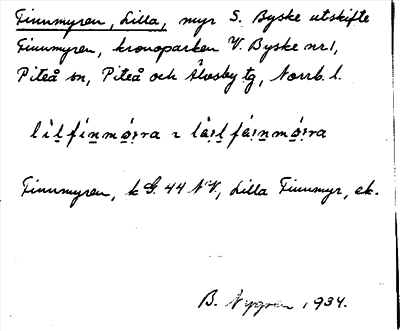 Finnmyren, Lilla, myr S. Byske utskifte
Finnmyren, kronoparken V. Byske nr 1,
Piteå sn, Piteå och Älvsby tg, Norrb. l.
Finnmyren, k G. 44 NV, Lilla Finnmyr, ek.
B. Nygren 1934.